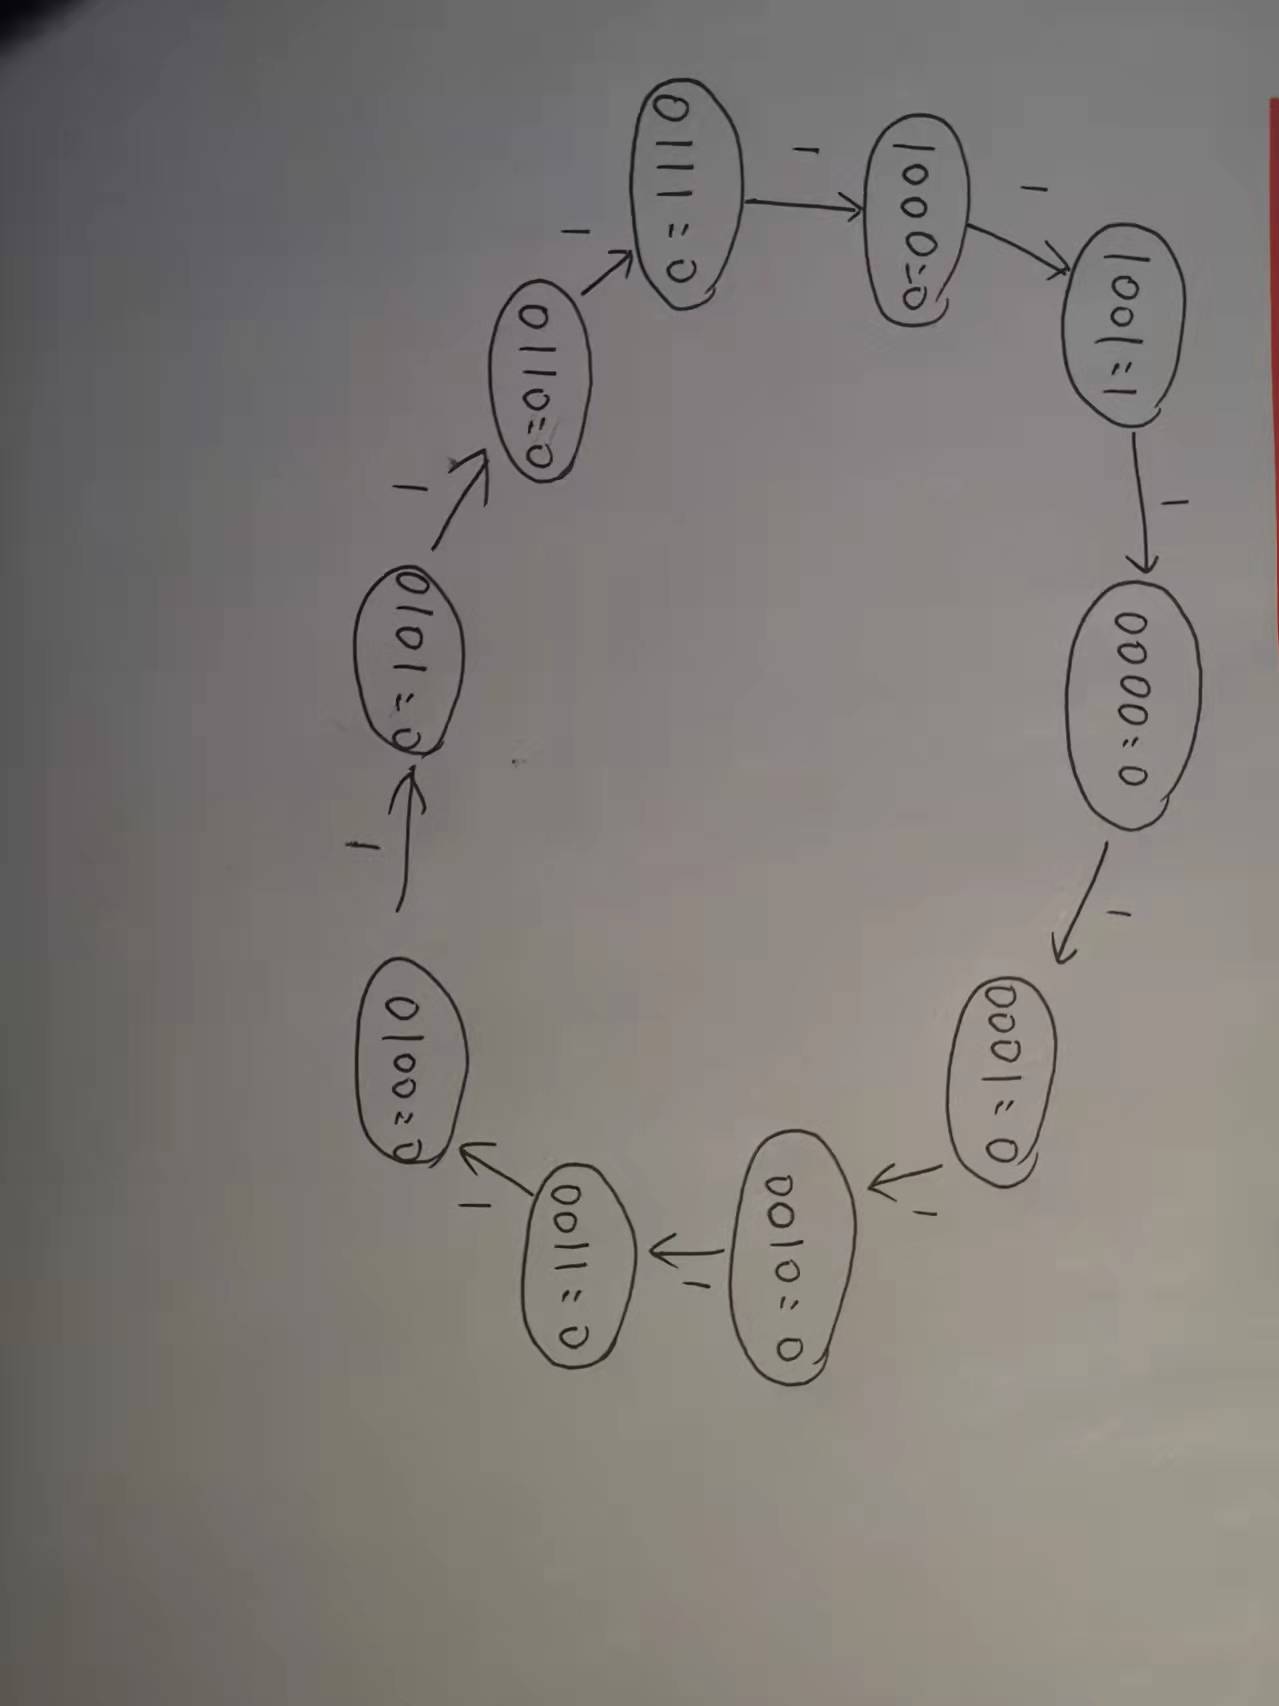 1001=1
1
0000=0
1
0001=0
1
0010=0
1
0011=0
1
0100=0
1
0101=0
1
0110=0
1
0111=0
1
1000=0
1